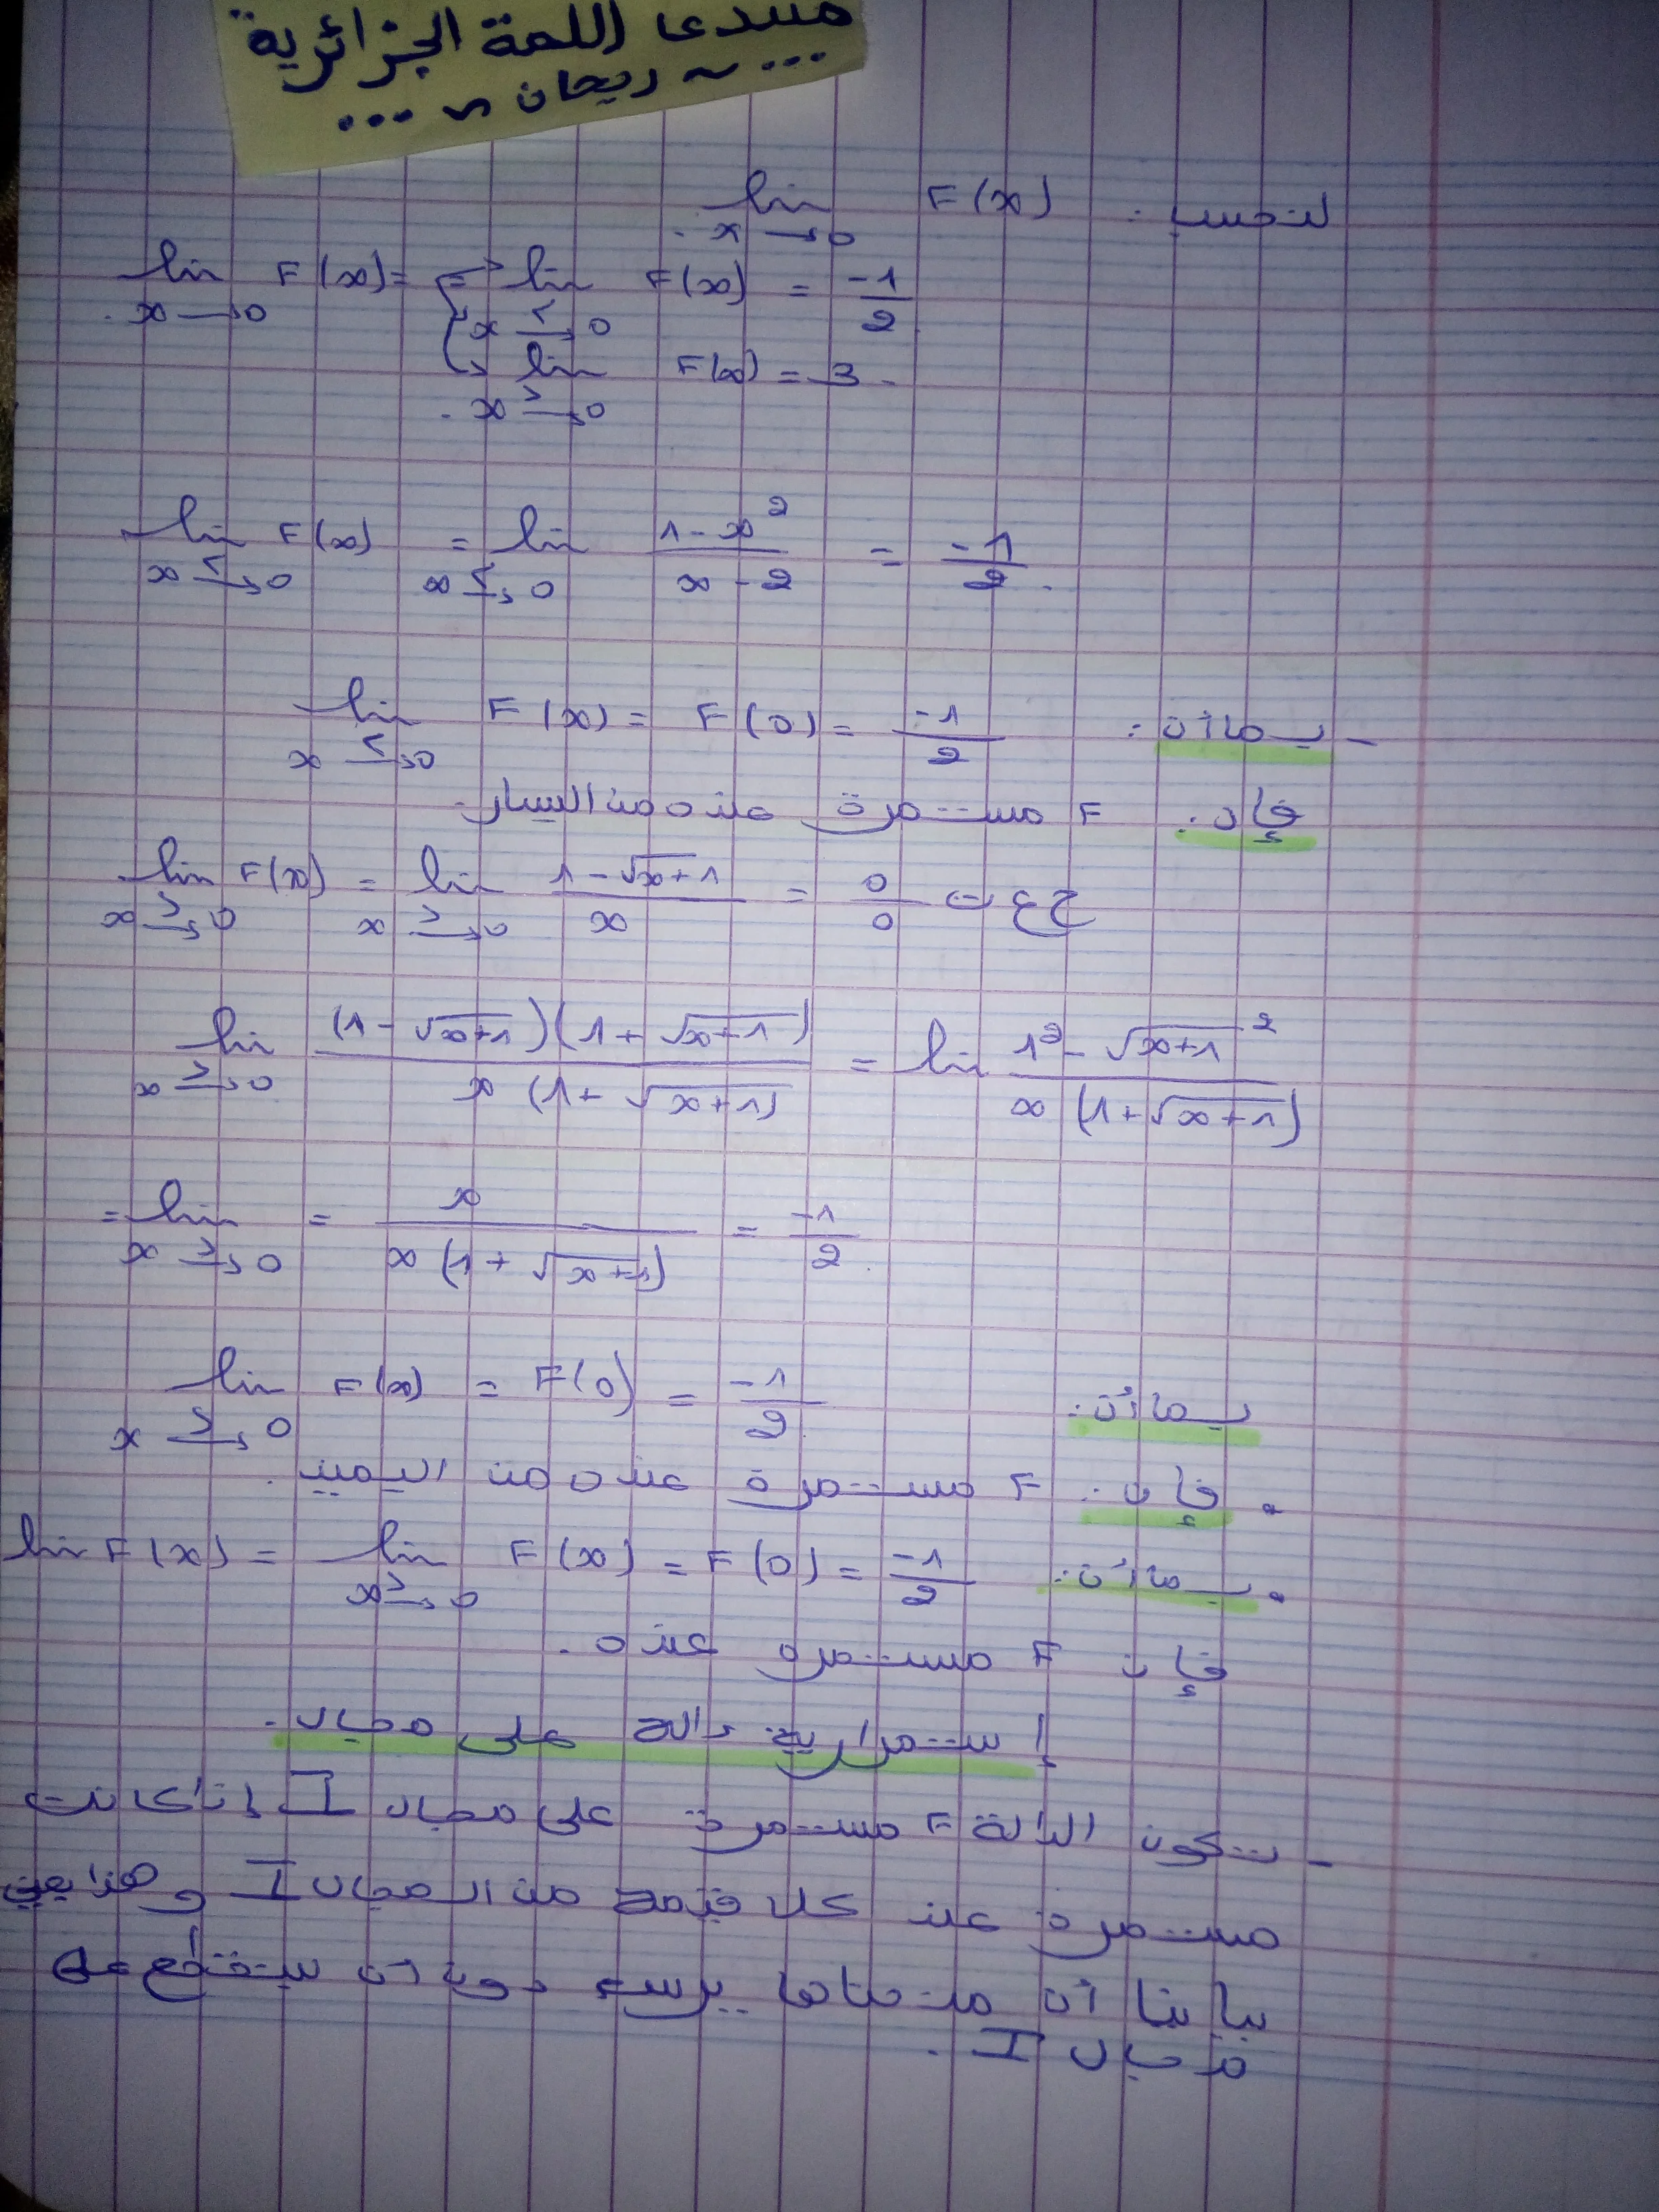 منتدى اللمة الجزائرية
... ~ ريحان ~ ...
لنحسب : lim F(x)
x → 0
lim F(x) = lim F(x) = -1/2
x → 0 x <→ 0
lim F(x) = 3
x >→ 0
lim F(x) = lim (1 - x²)/(x - 2) = -1/2
x <→ 0 x <→ 0
- بما أن : lim F(x) = F(0) = -1/2
x <→ 0
فإن : F مستمرة عند 0 من اليسار.
lim F(x) = lim (1 - √x+1)/x = 0/0 ح ع ت
x >→ 0 x >→ 0
lim (1 - √x+1)(1 + √x+1)/x(1 + √x+1) = lim (1² - √x+1²)/x(1 + √x+1)
x >→ 0
= lim = x/x(1 + √x+1) = -1/2
x >→ 0
بما أن : lim F(x) = F(0) = -1/2
x >→ 0
• فإن : F مستمرة عند 0 من اليمين.
• بما أن : lim F(x) = lim F(x) = F(0) = -1/2
x >→ 0
فإن F مستمرة عند 0.
إستمرارية دالة على مجال.
- تكون الدالة F مستمرة على مجال I إذا كانت
مستمرة عند كل قيمة من المجال I وهذا يعني
بيانيا أن منحناها يرسم دون أن ينقطع على
مجال I.